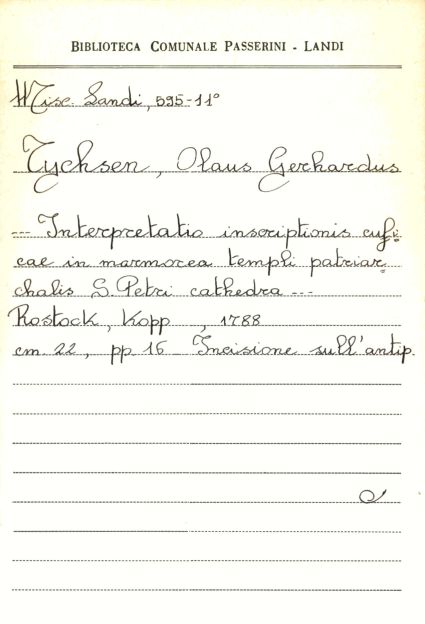 BIBLIOTECA COMUNALE PASSERINI - LANDI
Misc. Landi, 595-11°
Tychsen, Olaus Gerhardus
--- Interpretatio inscriptionis cufi=
cae in marmorea templi patriar=
chalis S. Petri cathedra ---
Rostock, Kopp , 1788
cm. 22, pp. 16 Incisione sull'antip.